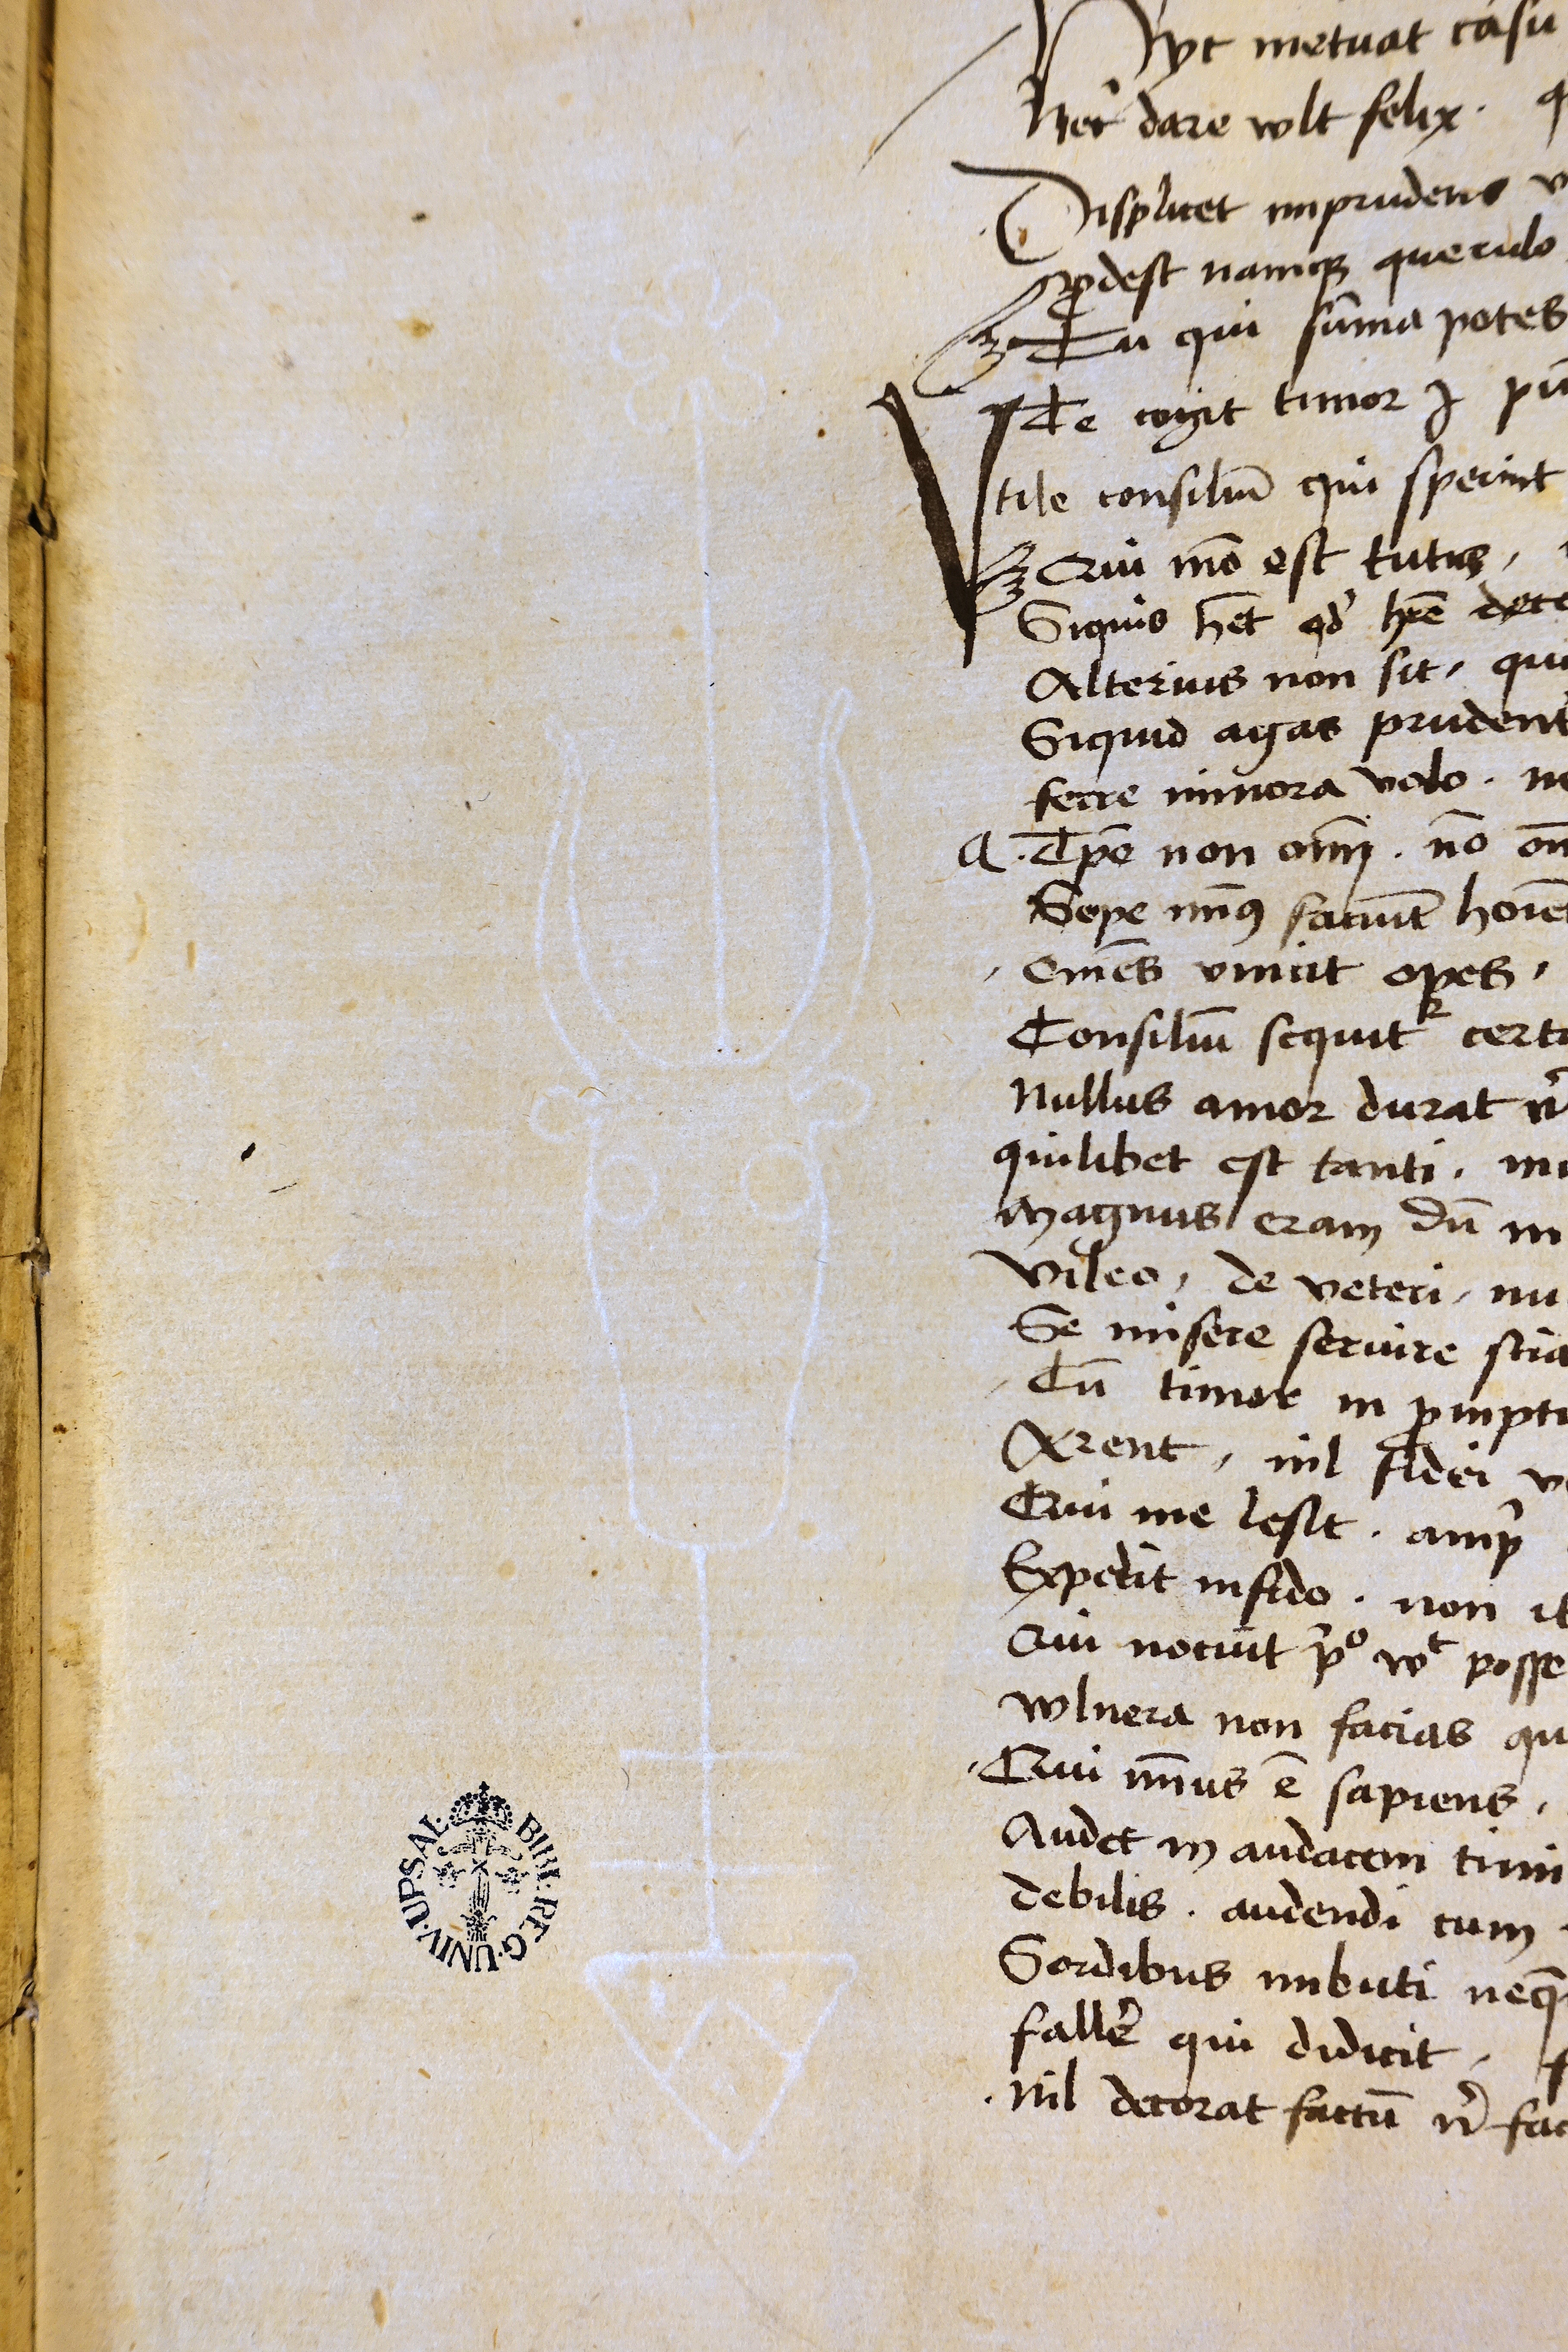 Nec metuat casu
Nec̄ dare wlt felix. q
Displicet imprudens v
ꝓdest namqꝫ querulo
Tu qui sūma potes
Te cogit timor
Vtile consiliū qui sperint
Cui mō est tutus,
Siquis hēt qd̛ hr̄e dece
Alterius non sit, qui
Siquid agas prudent
ferre minora volo. ne
a. Tpē non om̄i. nō om
Sepe mīꝯ faciūt hoīe
om̄es vincit opes,
Consiliū sequit᷑ certa
Nullus amor durat n̄
quilibet est tanti. mu
magnus eram dū m
vileo, de veteri, nu
Se misere seruire scia
Cū timor in ꝓmptu
Arent, nil fidei ve
Cui me lesit. amp̄
Expedit infido. non it
Cui nocuit p̄º wᵗ posse
wlnera non facias qu
Cui mīus ē sapiens,
Audet in audacem timi
debilis. audendi cum
Sordibus imbuti neqꝫ
fallēr qui didicit, f
Nil decorat factū n̄ fac
BIBL·REG·UNIV·UPSAL·